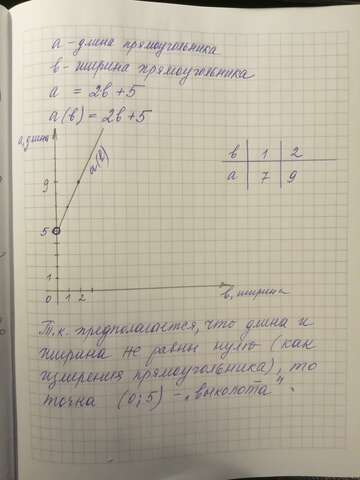 а - длина прямоугольника
в - ширина прямоугольника
а = 2в + 5
а(в) = 2в + 5
а, длина
а(в)
9
5
1
0 1 2
в, ширина
в 1 2
а 7 9
Т.к. предполагается, что длина и
ширина не равны нулю (как
измерения прямоугольника), то
точка (0; 5) - „выколота".